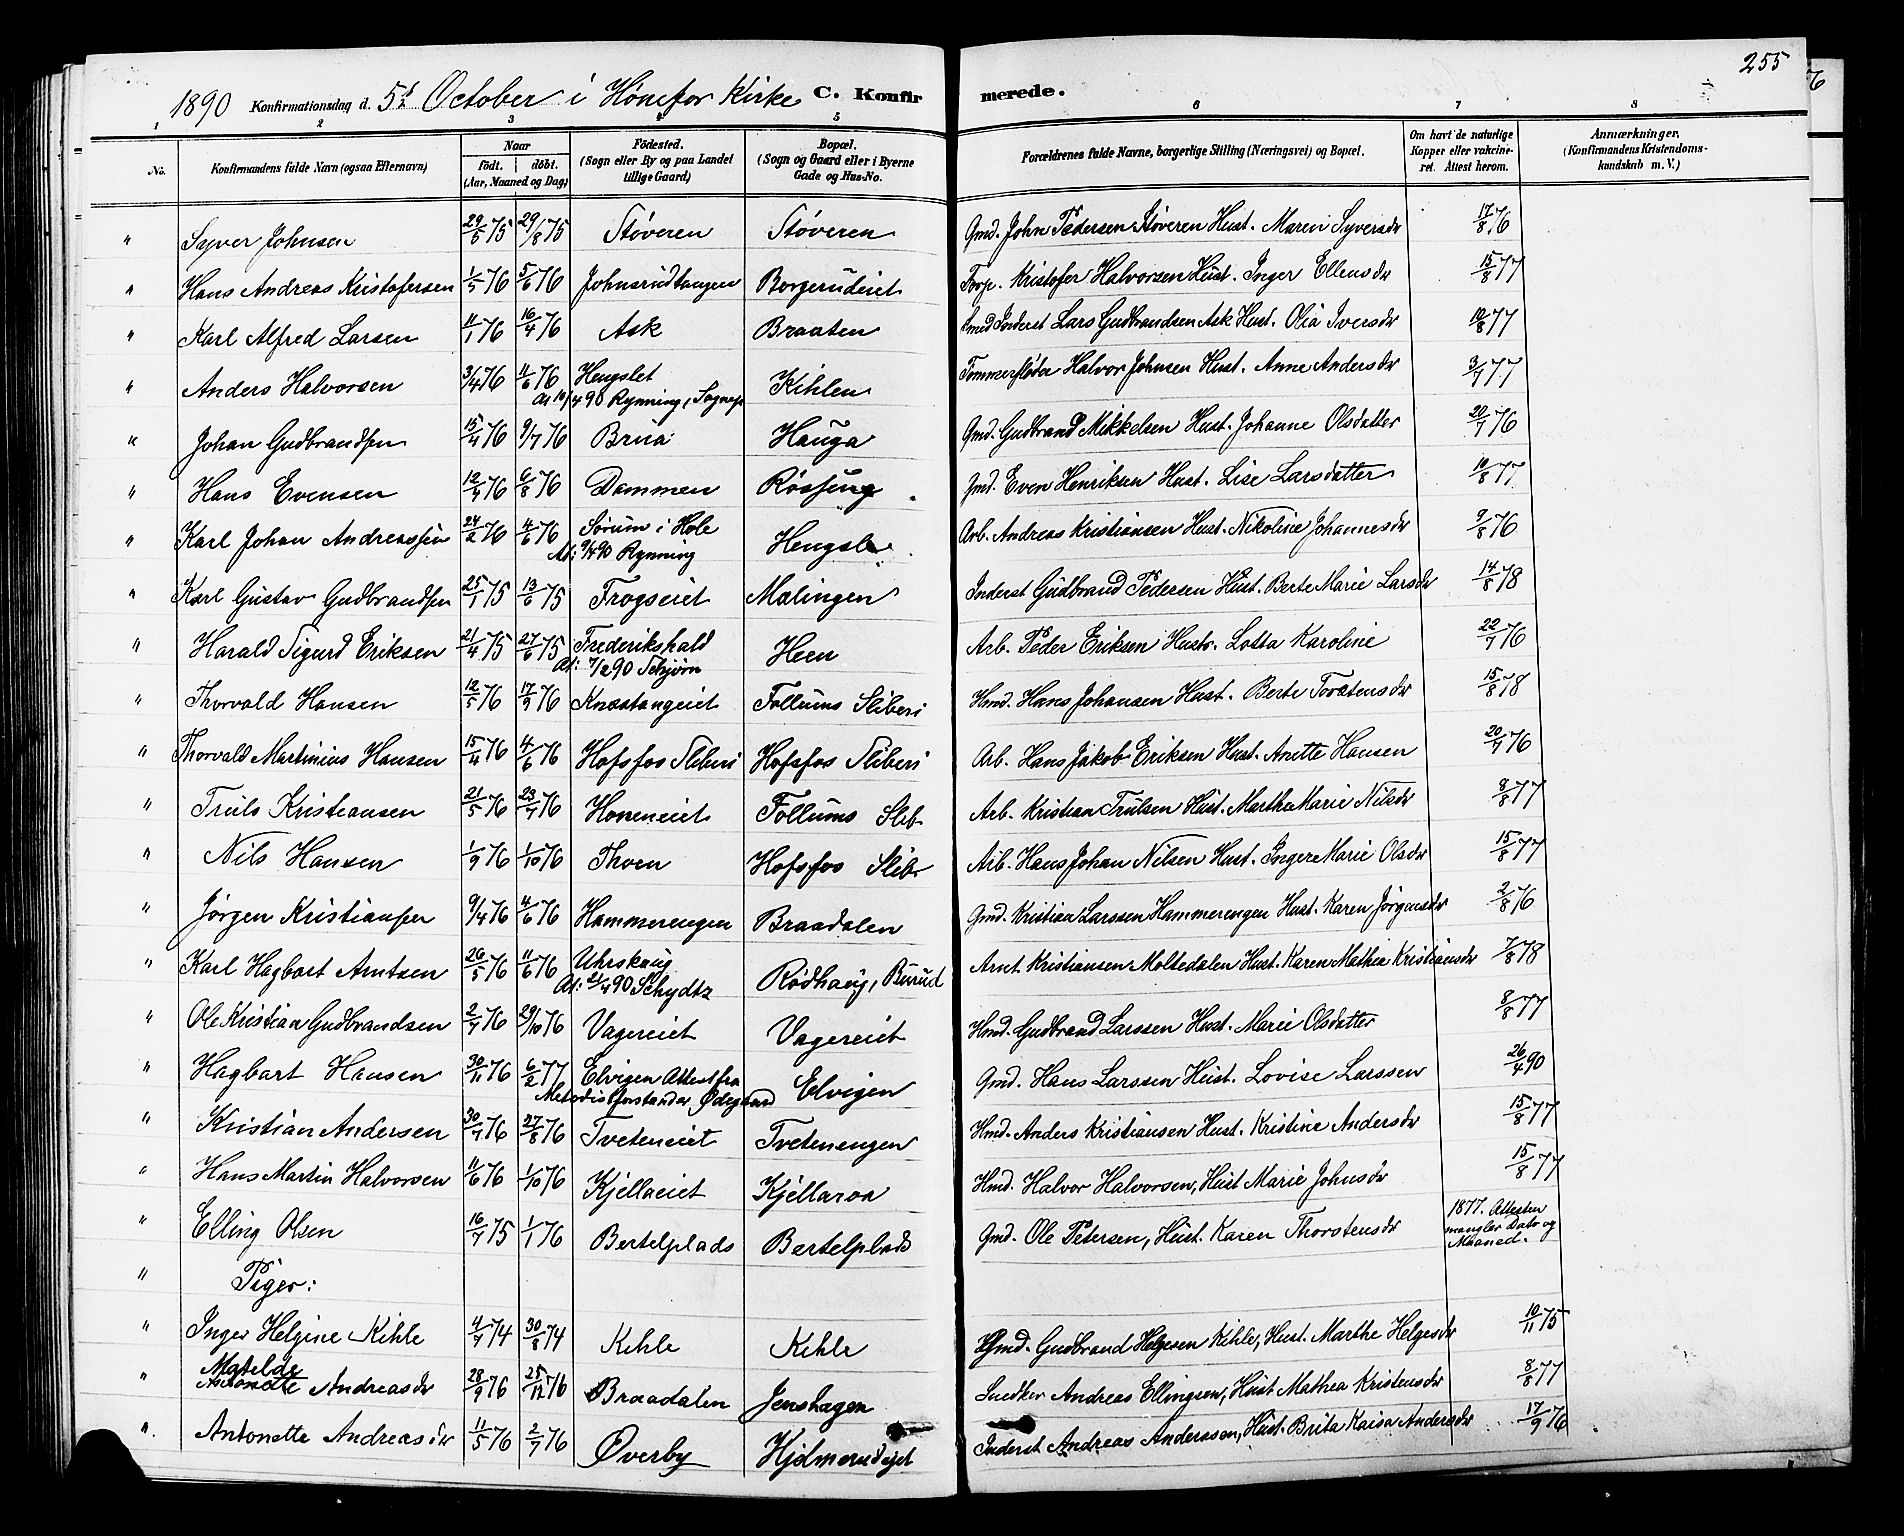 255
1890 Konfirmationsdag d. 5te October i Hønefos Kirke C. Konfirmerede.
1 2 3 4 5 6 7 8
No. Konfirmandens fulde Navn (ogsaa Efternavn) Naar født. døbt. (Aar, Maaned og Dag) Fødested. (Sogn eller By og paa Landet tillige Gaard) Bopæl. (Sogn og Gaard eller i Byerne Gade og Hus-No. Forældrenes fulde Navne, borgerlige Stilling (Næringsvei) og Bopæl. Om havt de naturlige Kopper eller vakcineret. Attest herom. Anmærkninger. (Konfirmandens Kristendomskundskab m. V.)
" Syver Johnsen 29/5 75 29/8 75 Støveren Støveren Gmd. John Pedersen Støveren Hust. Maren Syversdr 17/8 76
" Hans Andreas Kristofersen 1/5 76 5/6 76 Johnsrudtangen Borgerudeiet Torp. Kristofer Halvorsen Hust. Inger Ellensdr 15/8 77
" Karl Alfred Larsen 11/1 76 16/4 76 Ask Braaten Smed Inderst Lars Gudbrandsen Ask Hust. Olia Iversdr 10/8 77
" Anders Halvorsen 3/4 76 11/6 76 Hengslet Kihlen Tømmerfløder Halvor Johnsen Hust. Anne Andersdr 3/7 77
At 10/4 90 Rynning, Sognep
" Johan Gudbrandsen 15/4 76 9/7 76 Brua Hauga Gmd. Gudbrand Mikkelsen Hust. Johanne Olsdatter 20/7 76
" Hans Evensen 12/4 76 6/8 76 Dammen Røssing Gmd. Even Henriksen Hust. Lise Larsdatter 10/8 77
" Karl Johan Andreassen 24/2 76 4/6 76 Sørum i Hole Hengsle Arb. Andreas Kristiansen Hust. Nikoline Johannesdr 9/8 76
At: 9/4 90 Rynning
" Karl Gustav Gudbrandsen 25/1 75 13/6 75 Frogseiet Malingen Inderst Gudbrand Pedersen Hust. Berte Marie Larsdr 14/8 78
" Harald Sigurd Eriksen 21/4 75 27/6 75 Frederikshald Heen Arb. Peder Eriksen Hustr. Lotta Karoline 22/7 76
At: 7/2 90 Schjørn
" Thorvald Hansen 12/5 76 17/9 76 Knæstangeiet Follums Sliberi Hmd. Hans Johansen Hust. Berte Torstensdr 15/8 78
" Thorvald Martinius Hansen 15/4 76 4/6 76 Hofsfos Sliberi Hofsfos Sliberi Arb. Hans Jakob Eriksen Hust. Anette Hansen 20/7 76
" Truls Kristiansen 21/5 76 23/7 76 Honeneiet Follums Slib. Arb. Kristian Trulsen Hust. Marthea Marie Nilsdr 8/8 77
" Nils Hansen 1/9 76 1/10 76 Thoen Hofsfos Slibr Arb. Hans Johan Nilsen Hust. Ingere Marie Olsdr 15/8 77
" Jørgen Kristiansen 9/4 76 4/6 76 Hammerengen Braadalen Gmd. Kristian Larssen Hammerengen Hust. Karen Jørgensdr 2/8 76
" Karl Hagbart Arntsen 26/5 76 11/6 76 Uhrskoug Rødhaug, Burud Arnt Kristiansen Moltedalen Hust. Karen Mathea Kristiansdr 7/8 78
At: 21/4 90 Schydtz
" Ole Kristian Gudbrandsen 2/7 76 29/10 76 Vagereiet Vagereiet Hmd. Gudbrand Larssen Hust. Marie Olsdatter 8/8 77
" Hagbart Hansen 30/11 76 6/2 77 Elvigen Attest fra Elvigen Gmd. Hans Larssen Hust. Lovise Larssen 26/4 90
Metodistforstander Ødegaard
" Kristian Andersen 30/7 76 27/8 76 Tveteneiet Tvetenengen Hmd. Anders Kristiansen Hust. Kristine Andersdr 15/8 77
" Hans Martin Halvorsen 11/6 76 1/10 76 Kjellaeiet Kjellaroa Hmd. Halvor Halvorsen, Hust Marie Johnsdr 15/8 77
" Elling Olsen 16/7 75 1/1 76 Bertelplads Bertelplads Gmd. Ole Petersen, Hust. Karen Thorstensdr 1877. Attesten mangler Dato og Maaned.
" Piger:
" Inger Helgine Kihle 4/7 74 30/8 74 Kihle Kihle Gmd. Gudbrand Helgesen Kihle, Hust. Marthe Helgesdr 10/11 75
" Matilde Antonette Andreasdr 28/9 76 25/12 76 Braadalen Jenshagen Snedker Andreas Ellingsen, Hust Mathea Kristensdr 8/8 77
" Antonette Andreasdr 11/5 76 2/7 76 Øverby Hjelmerudejet Inderst Andreas Anderssen, Hust. Brita Kaisa Andersdr 17/9 76